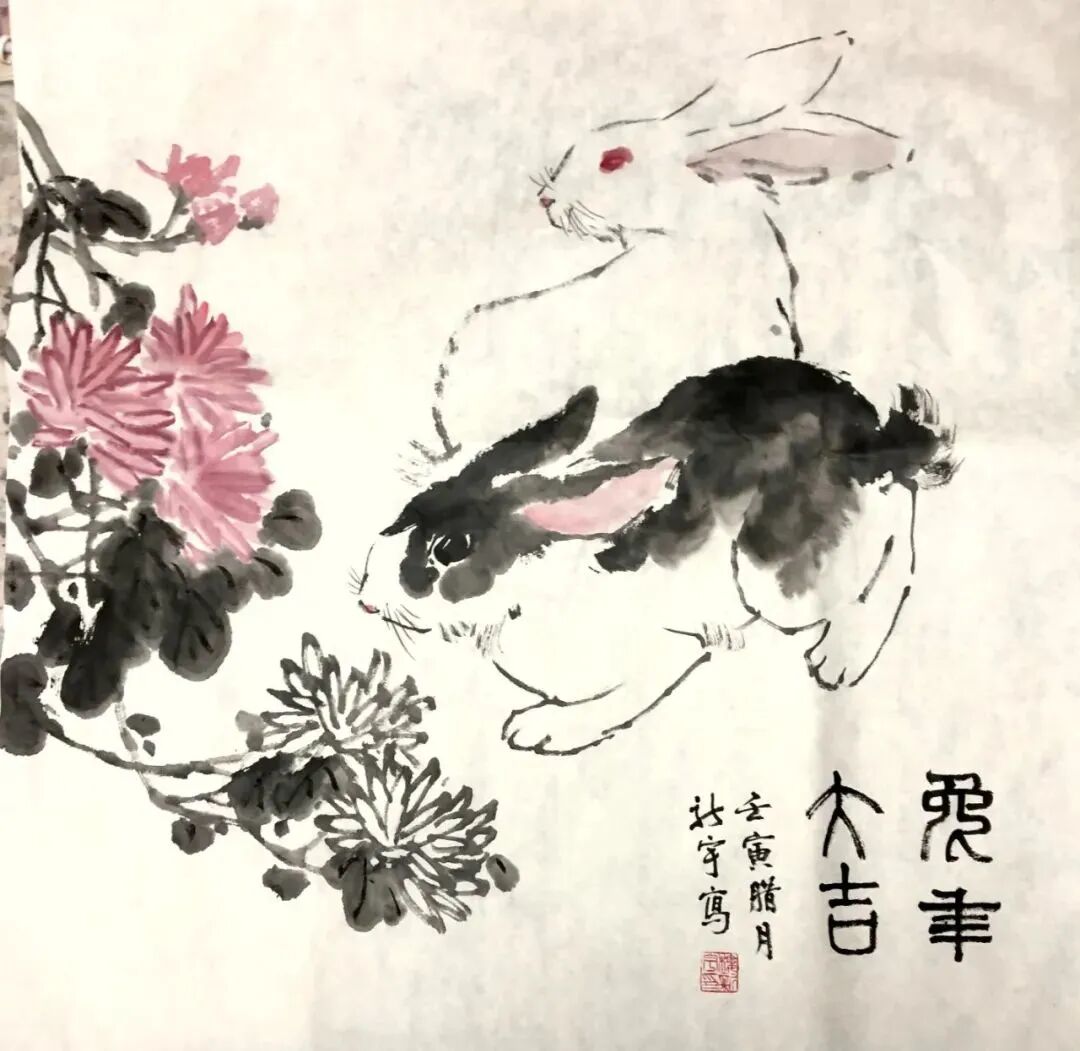 兔年
大吉
壬寅腊月
新宇寫